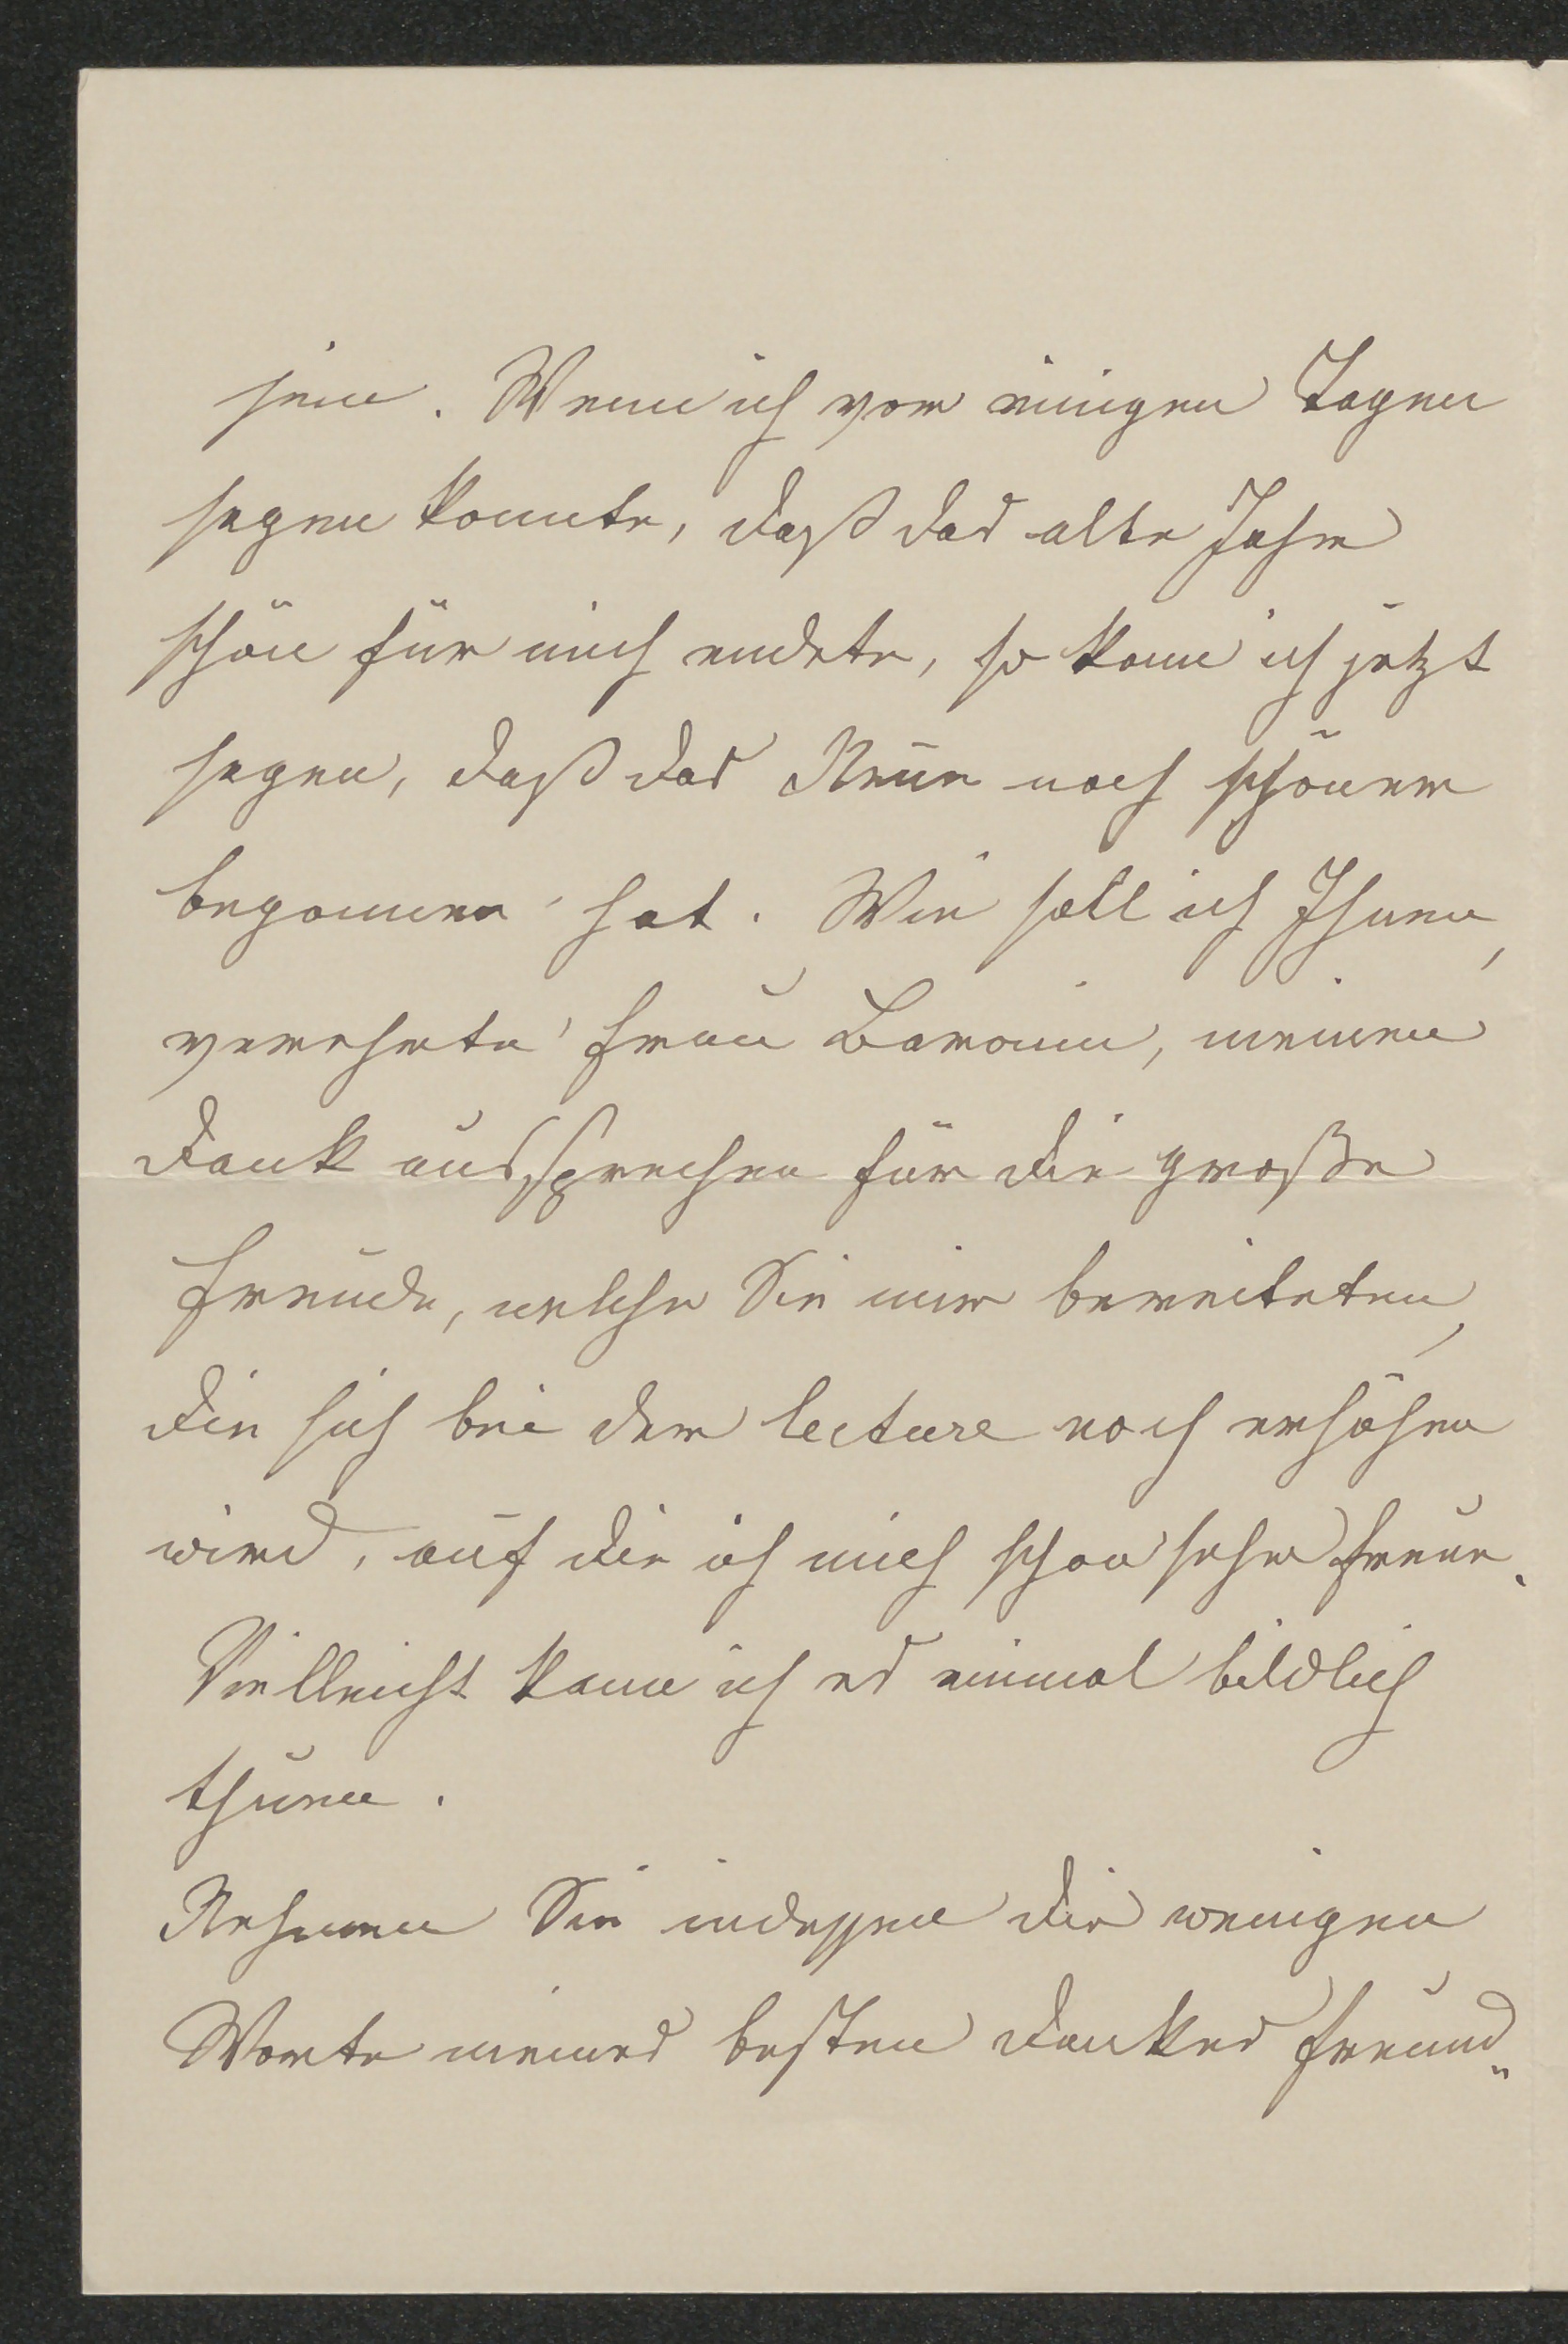 sein. Wenn ich vor einigen Tagen
sagen konnte, daß das alte Jahr
schön für mich endete, so kann ich jetzt
sagen, daß das Neue noch schöner
begonnen hat. Wie soll ich Ihnen,
verehrte Frau Baronin, meinen
Dank aussprechen für die große
Freude, welche Sie mir bereiteten,
die sich bei der lecture noch erhöhen
wird, auf die ich mich schon sehr freue.
Vielleicht kann ich es einmal bildlich
thunen.
Nehmen Sie indessen die wenigen
Worte meines besten Dankes freund„